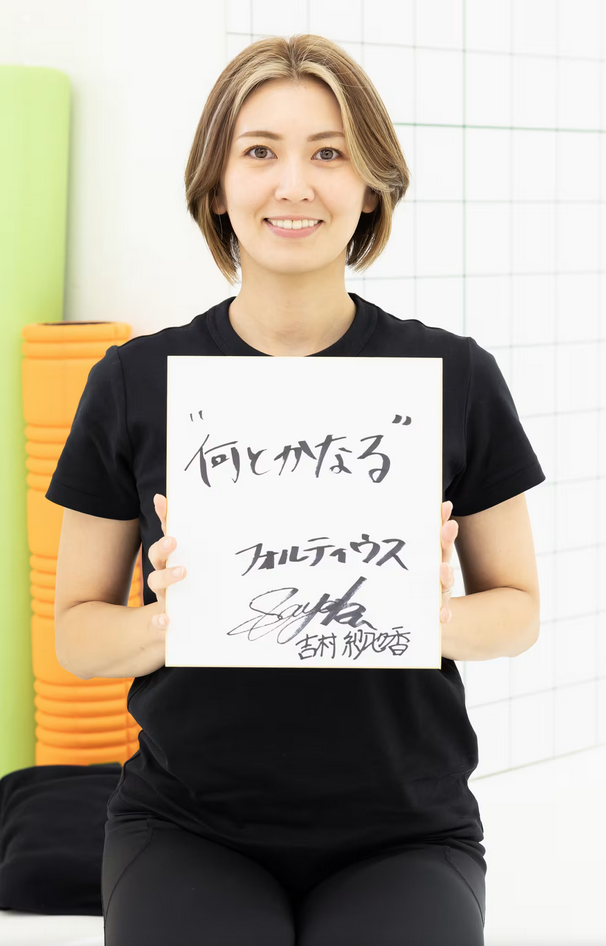 "何とかなる"
フォルティウス
Sayaka
吉村 紗也香